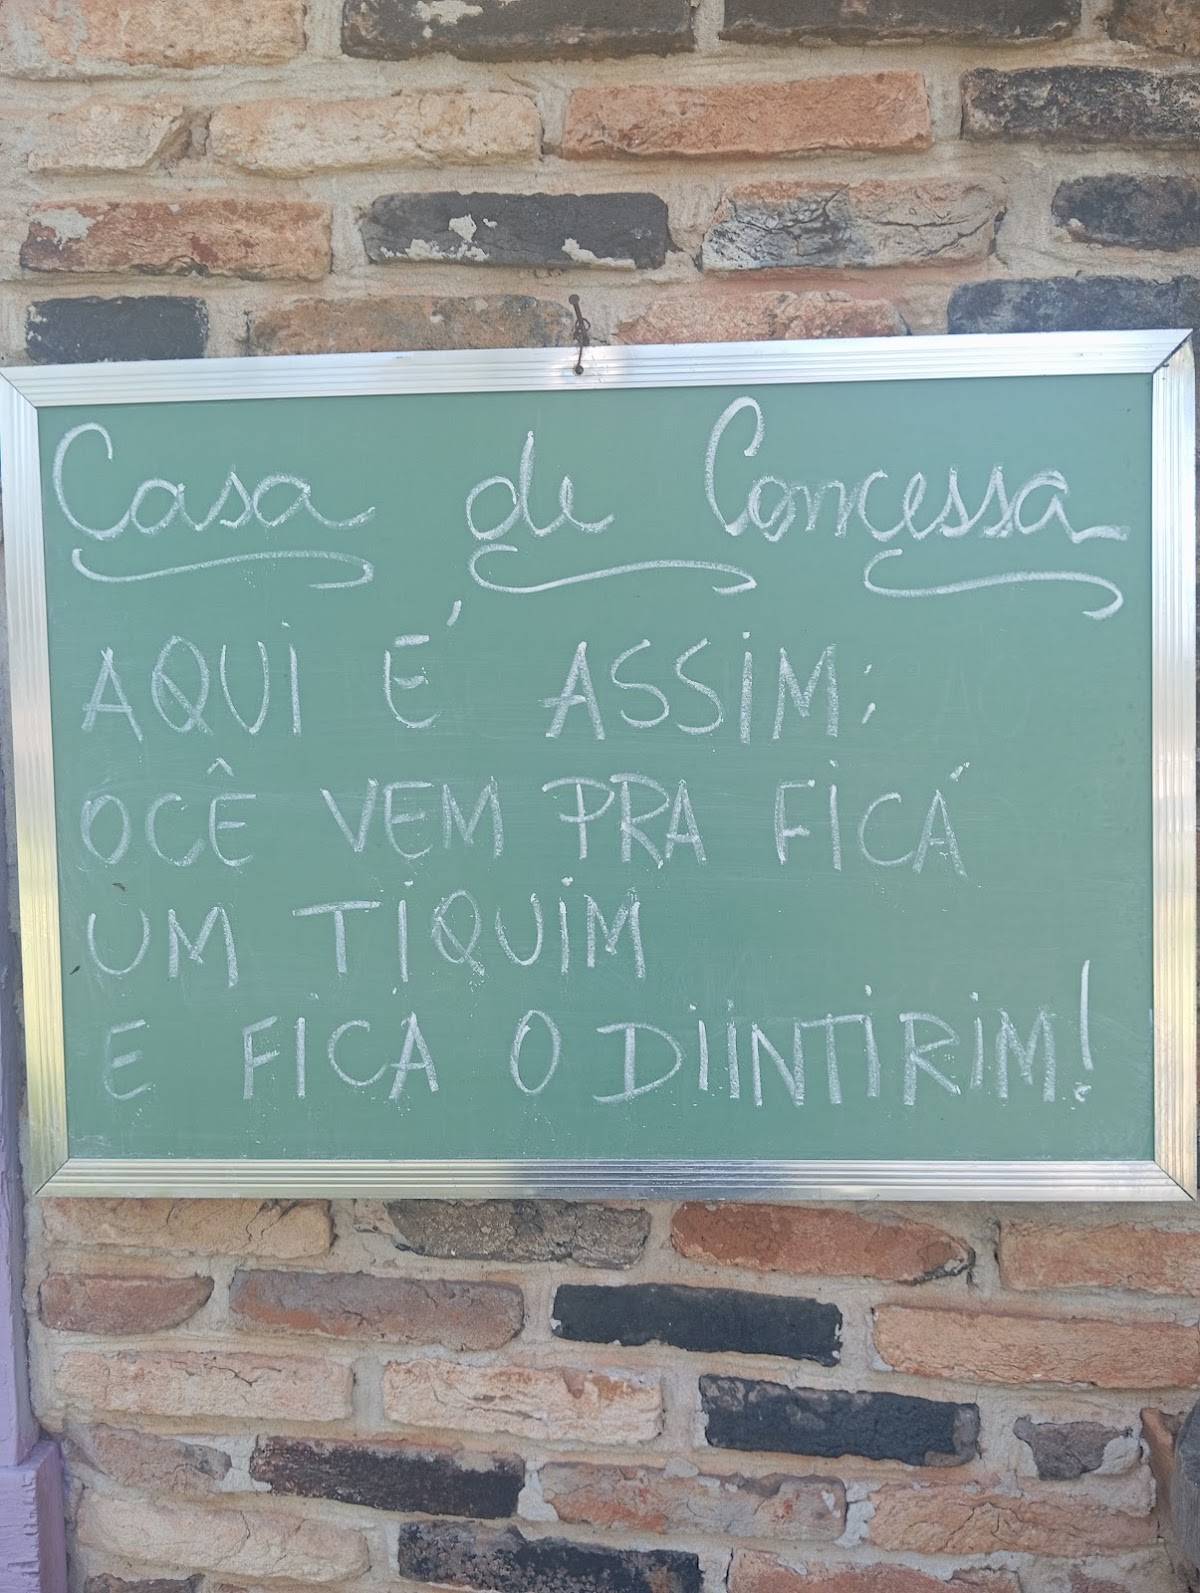 Casa de Concessa
AQUI É ASSIM:
OCÊ VEM PRA FICÁ
UM TIQUIM
E FICA O DIINTIRIM!